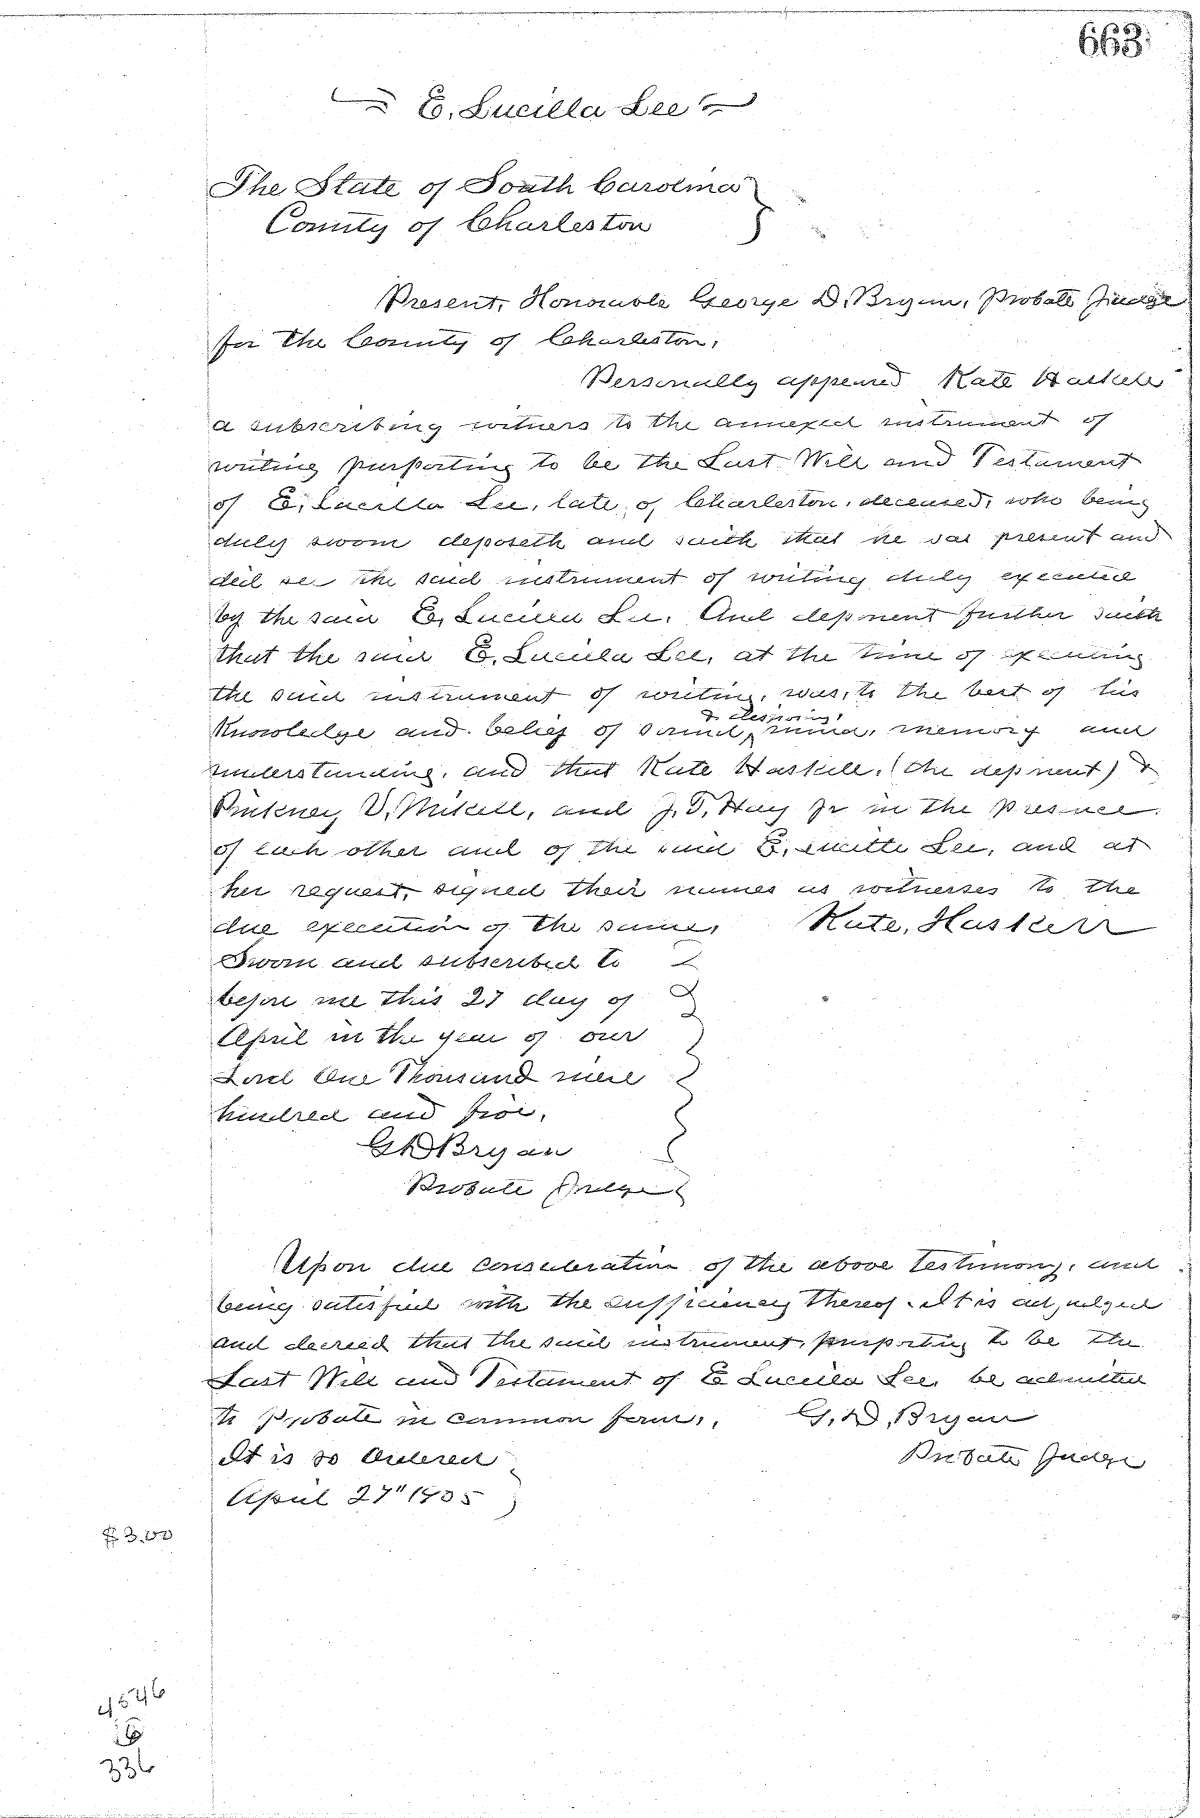 663
E. Lucilla Lee
The State of South Carolina
County of Charleston
Present, Honorable George D. Bryan, Probate Judge
for the County of Charleston.
Personally appeared Kate Haskell
a subscribing witness to the annexed instrument of
writing purporting to be the Last Will and Testament
of E. Lucilla Lee, late of Charleston, deceased, who being
duly sworn deposeth and saith that he was present and
did see the said instrument of writing duly executed
by the said E. Lucilla Lee. And deponent further saith
that the said E. Lucilla Lee, at the time of executing
the said instrument of writing, was, to the best of his
& disposing
Knowledge and belief of sound, mind, memory and
understanding, and that Kate Haskell, (the deponent) &
Pinkney V. Mikell, and J. T. Hay Jr in the presence
of each other and of the said E. Lucilla Lee, and at
her request, signed their names as witnesses to the
due execution of the same. Kate, Haskell
Sworn and subscribed to
before me this 27 day of
April in the year of our
Lord One Thousand nine
hundred and five.
G D Bryan
Probate Judge
Upon due consideration of the above testimony, and
being satisfied with the sufficiency thereof. It is adjudged
and decreed that the said instrument, purporting to be the
Last Will and Testament of E Lucilla Lee, be admitted
to Probate in common form. G. D. Bryan
It is so Ordered Probate Judge
April 27" 1905
$3.00
4546
336